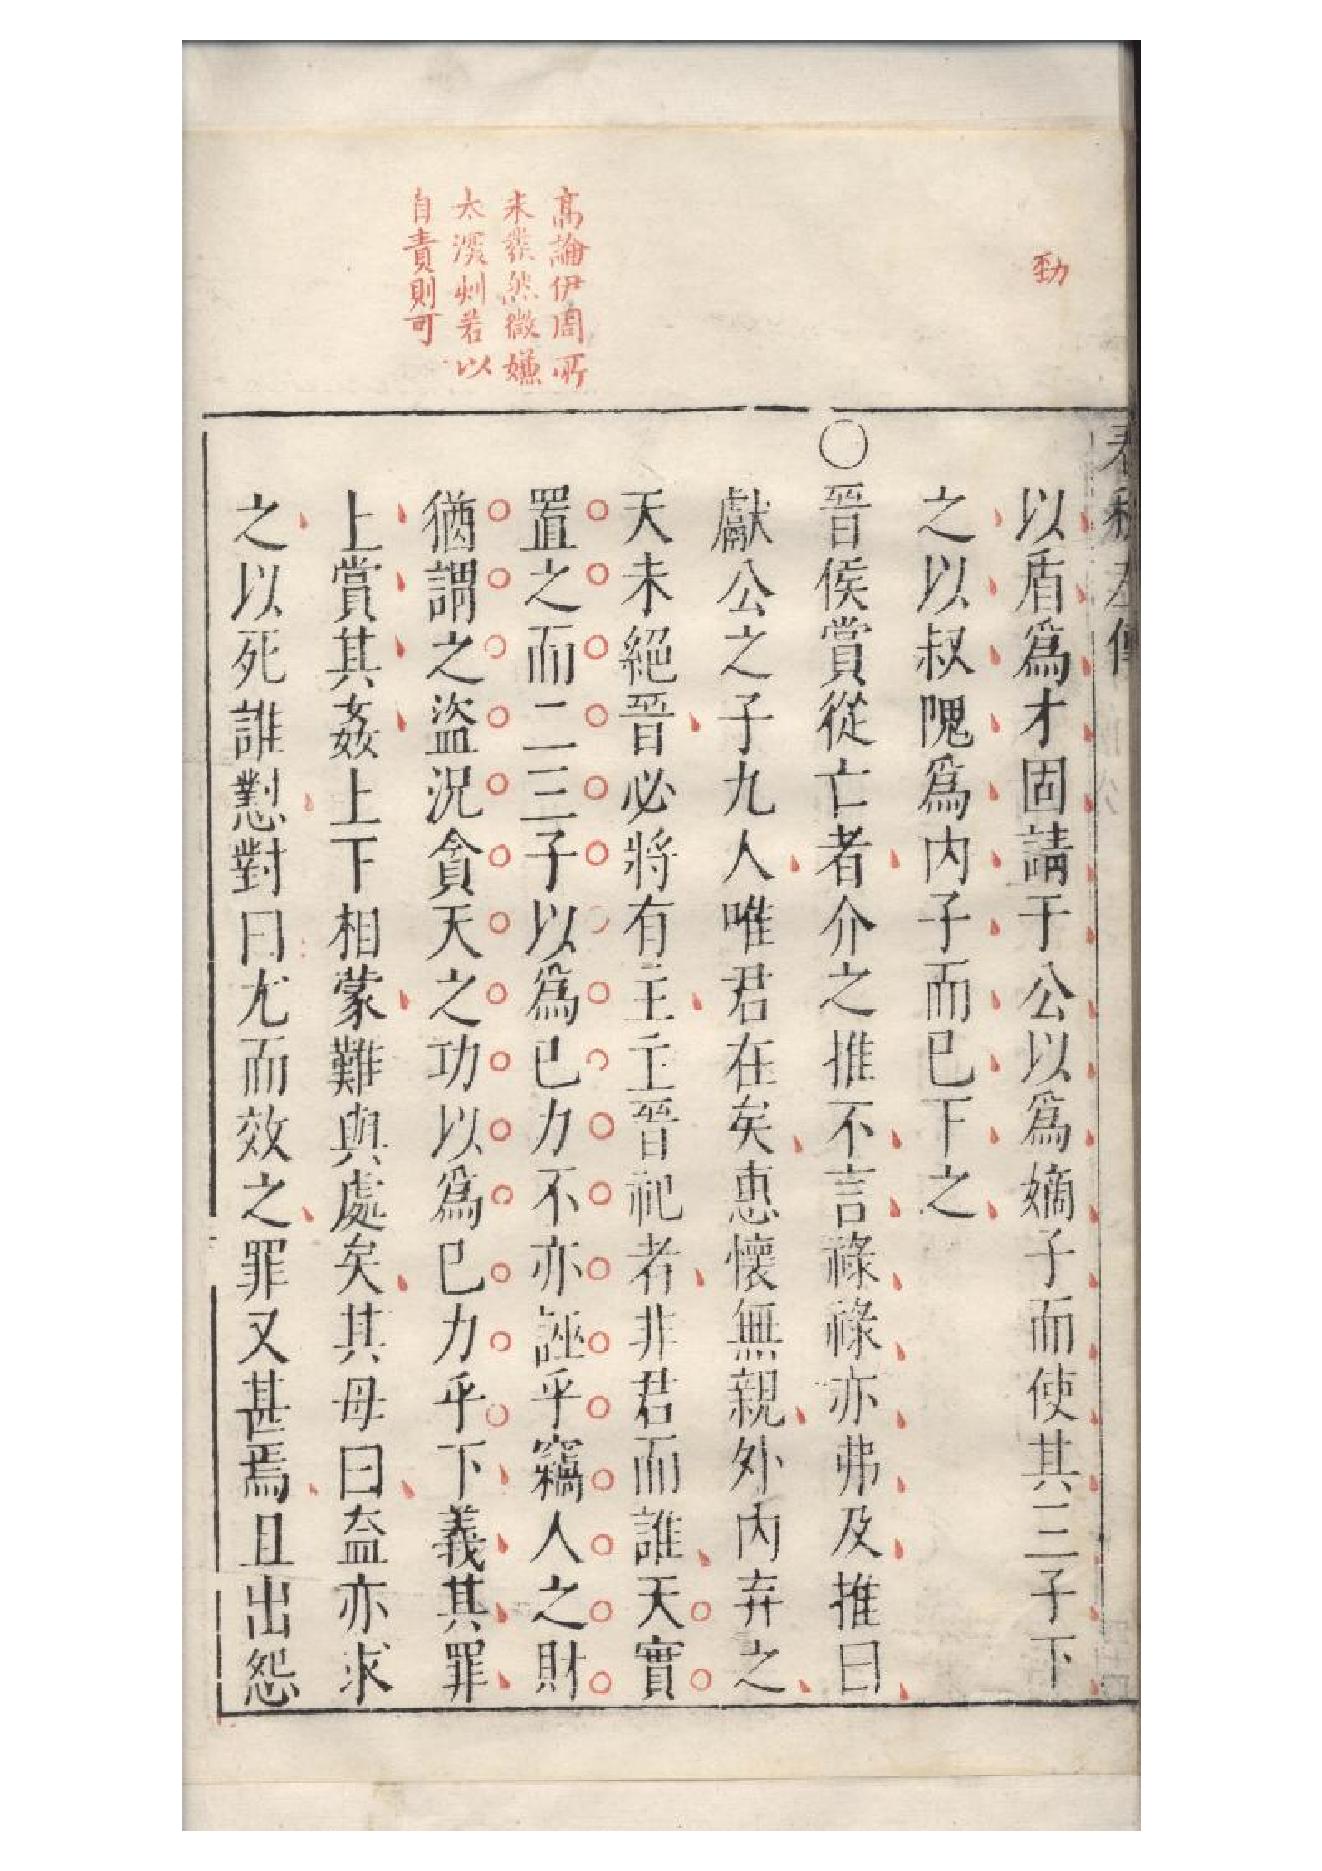 勁
高論伊周所
未業然微嫌
太深刻若以
自責則可
春秋左傳
以盾爲才固請于公以爲嫡子而使其三子下
之以叔隗爲内子而已下之
○晉侯賞從亡者介之推不言祿祿亦弗及推曰
獻公之子九人唯君在矣惠懷無親外内弃之
天未絕晉必將有主主晉祀者非君而誰天實
置之而二三子以爲已力不亦誣乎竊人之財
猶謂之盜況貪天之功以爲已力乎下義其罪
上賞其姦上下相蒙難與處矣其母曰盍亦求
之以死誰懟對曰尤而效之罪又甚焉且出怨